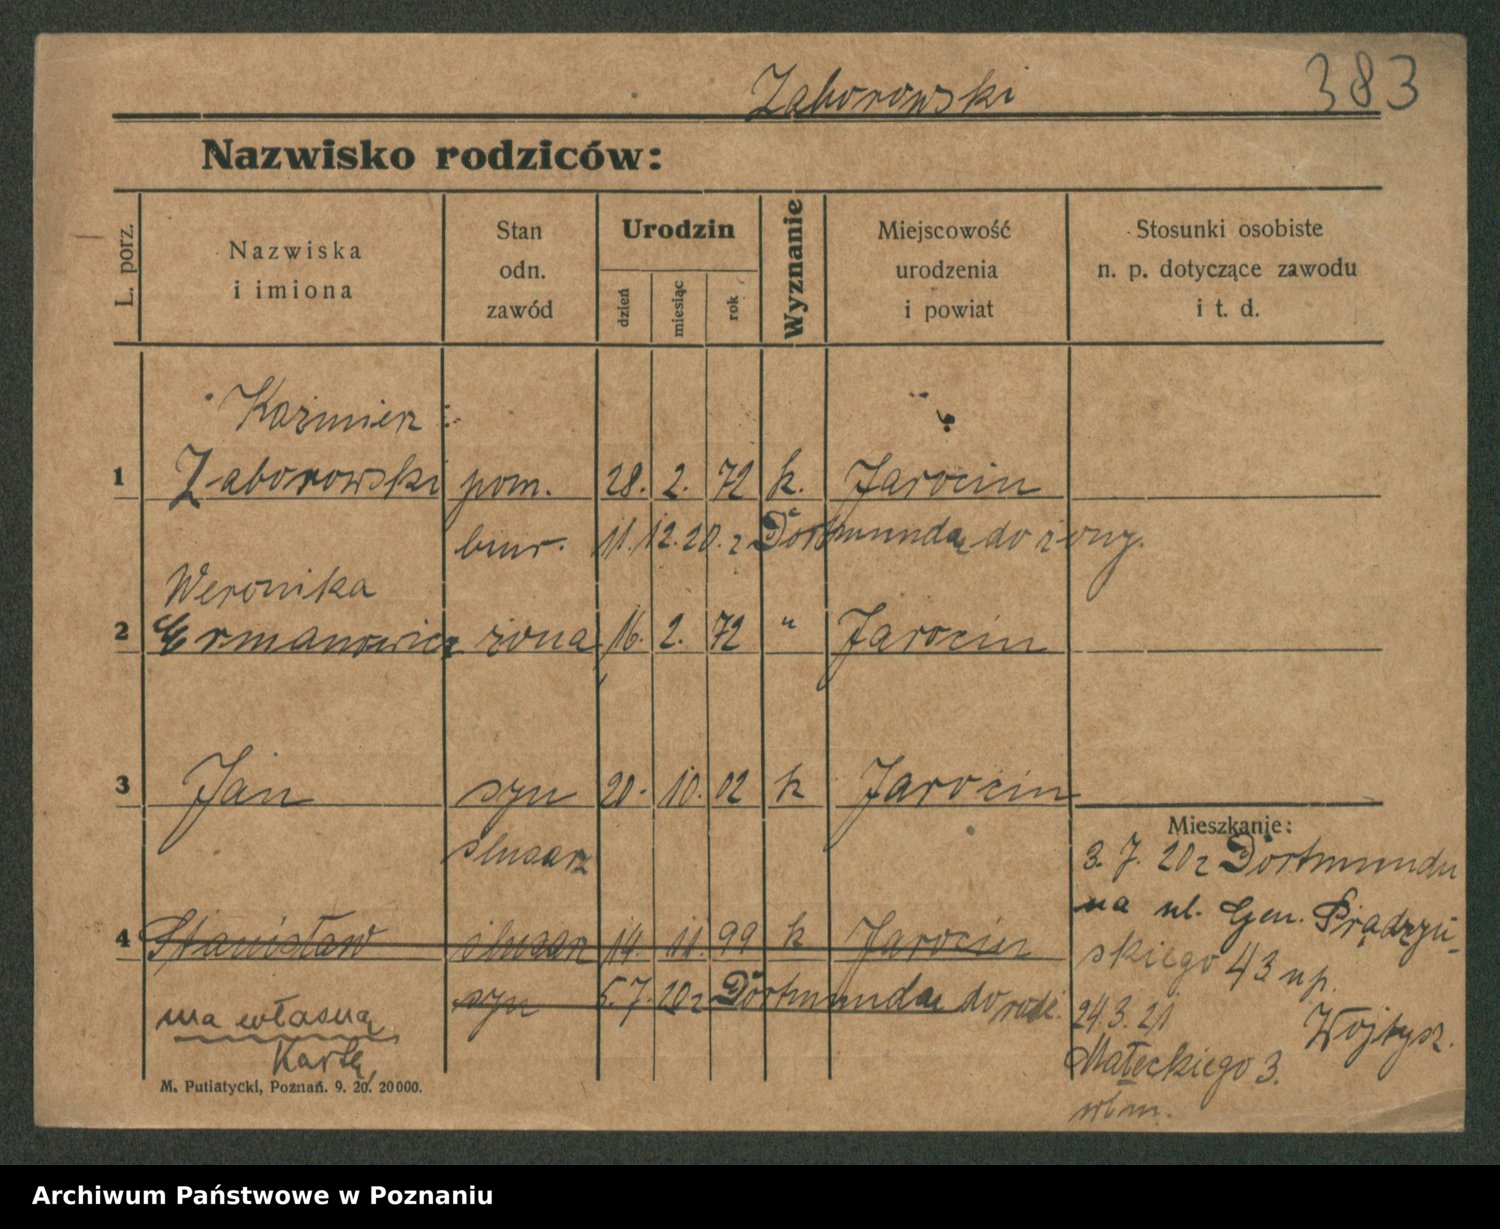 Zaborowski 383
Nazwisko rodziców:
L. porz.
Nazwiska
i imiona
Stan
odn.
zawód
Urodzin
dzień
miesiąc
rok
Wyznanie
Miejscowość
urodzenia
i powiat
Stosunki osobiste
n. p. dotyczące zawodu
i t. d.
Kaźmierz
1 Zaborowski pom. 28. 2. 72 k. Jarocin
biur. 11. 12. 20. z Dortmundu do żony.
Weronika
2 Ermanowicz żona 16. 2. 72 " Jarocin
3 Jan syn 20. 10. 02 k Jarocin
slusarz
4 Stanisław slusarz 14. 11. 99 k Jarocin
syn 5. 7. 20 z Dortmundu do rodz.
ma własną
Kartę
Mieszkanie:
3. 7. 20 z Dortmundu
na ul. Gen. Prądzyń-
skiego 43 u p.
Wojtysz.
24. 3. 21
Małeckiego 3.
wł m.
M. Putiatycki, Poznań. 9. 20. 20000.
Archiwum Państwowe w Poznaniu